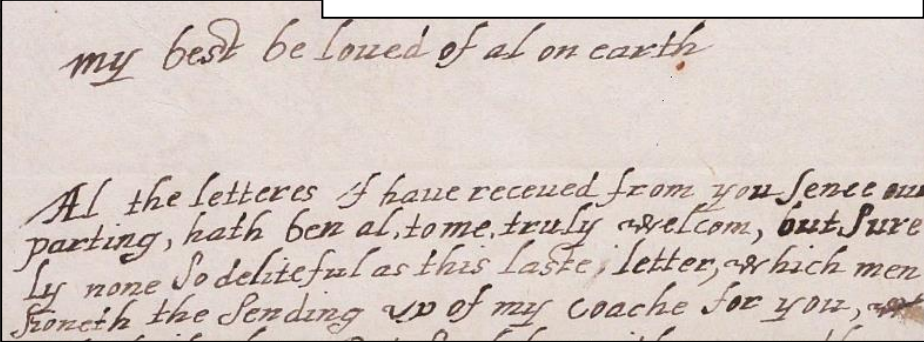 my best be loued of al on earth
Al the letteres I haue receued from you sence our
parting, hath ben al, to me, truly welcom, but sure
ly none so deliteful as this laste, letter, which men
tioneth the sending up of my coache for you,